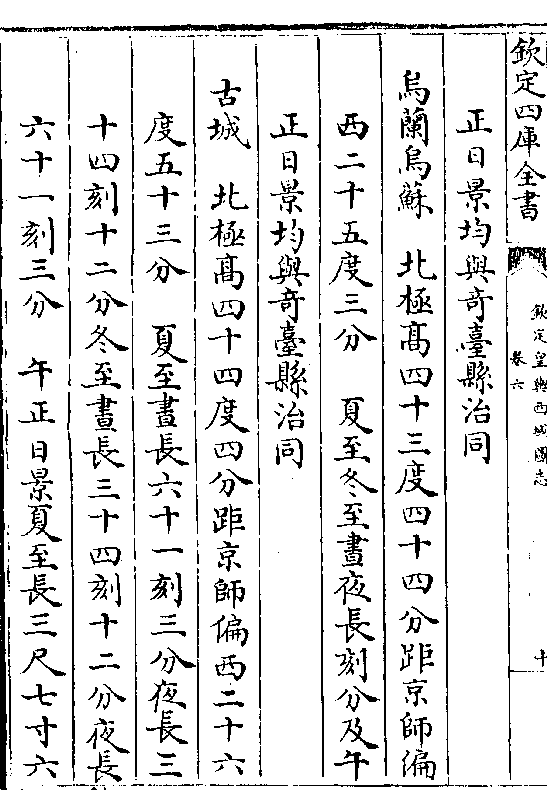 欽定四庫全書
欽定皇輿西域圖志
卷六
十
正日景均與竒臺縣治同
烏蘭烏蘇　北極髙四十三度四十四分距京師偏
西二十五度三分　夏至冬至晝夜長刻分及午
正日景均與竒臺縣治同
古城　北極髙四十四度四分距京師偏西二十六
度五十三分　夏至晝長六十一刻三分夜長三
十四刻十二分冬至晝長三十四刻十二分夜長
六十一刻三分　午正日景夏至長三尺七寸六